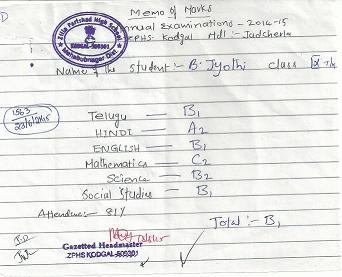 Memo of Marks
Annual Examinations - 2014-15
ZPHS- Kodgal Mdl :- Jadcherla
Zilla Parishad High School
KODGAL-509301
Mahabubnagar Dist.
Name of the Student :- B. Jyothi class
1563
23/6/2015
Telugu — B1
HINDI — A2
ENGLISH — B1
Mathematics — C2
Science — B2
Social Studies — B1
Attendance - 81%
Total :- B1
Gazetted Headmaster
ZPHS KODGAL-509301